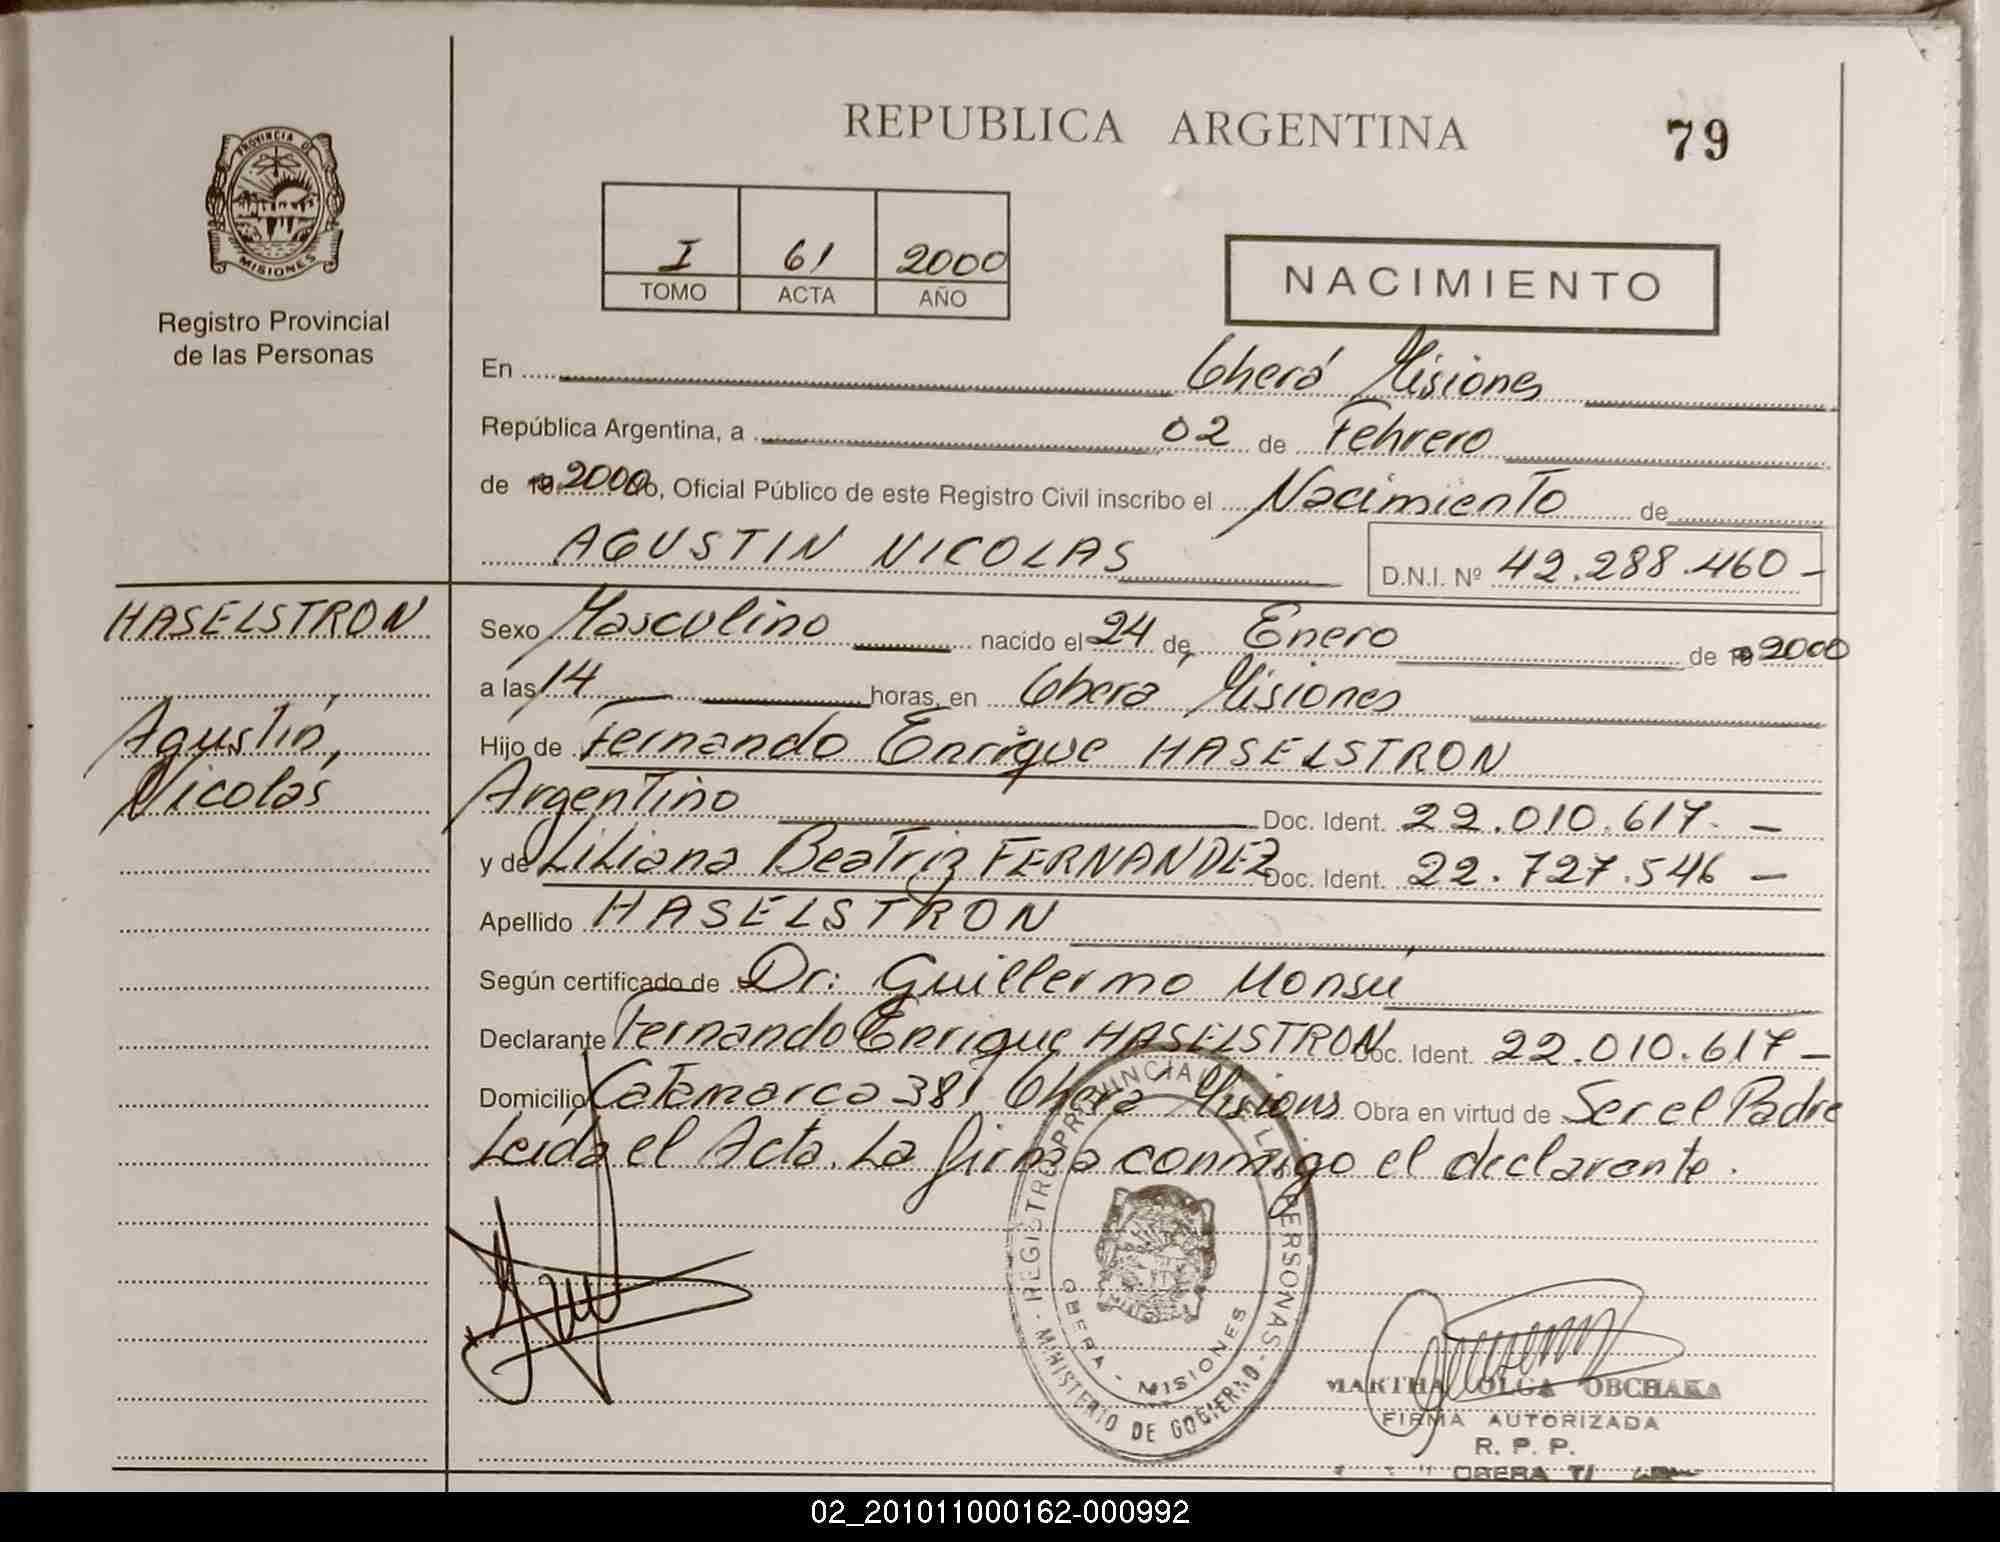 REPUBLICA ARGENTINA
79
PROVINCIA D
MISIONES
Registro Provincial
de las Personas
I 61 2000
TOMO ACTA AÑO
NACIMIENTO
En Oberá Misiones
República Argentina, a 02 de Febrero
de 19 2000 o, Oficial Público de este Registro Civil inscribo el Nacimiento de
AGUSTIN NICOLAS D.N.I. Nº 42.288.460 -
HASELSTRON
Agustín,
Nicolás
Sexo Masculino nacido el 24 de Enero de 19 2000
a las 14 horas, en Oberá Misiones
Hijo de Fernando Enrique HASELSTRON
Argentino Doc. Ident. 22.010.617. -
y de Liliana Beatriz FERNANDEZ Doc. Ident. 22.727.546 -
Apellido HASELSTRON
Según certificado de Dr: Guillermo Monsú
Declarante Fernando Enrique HASELSTRON Doc. Ident. 22.010.617 -
Domicilio Catamarca 381 Oberá Misions Obra en virtud de Ser el Padre
Leída el Acta. La firma conmigo el declarante.
REGISTRO PROVINCIAL DE LAS PERSONAS
OBERA - MISIONES
- MINISTERIO DE GOBIERNO -
MARTHA OLGA OBCHAKA
FIRMA AUTORIZADA
R. P. P.
OBERA
02_201011000162-000992